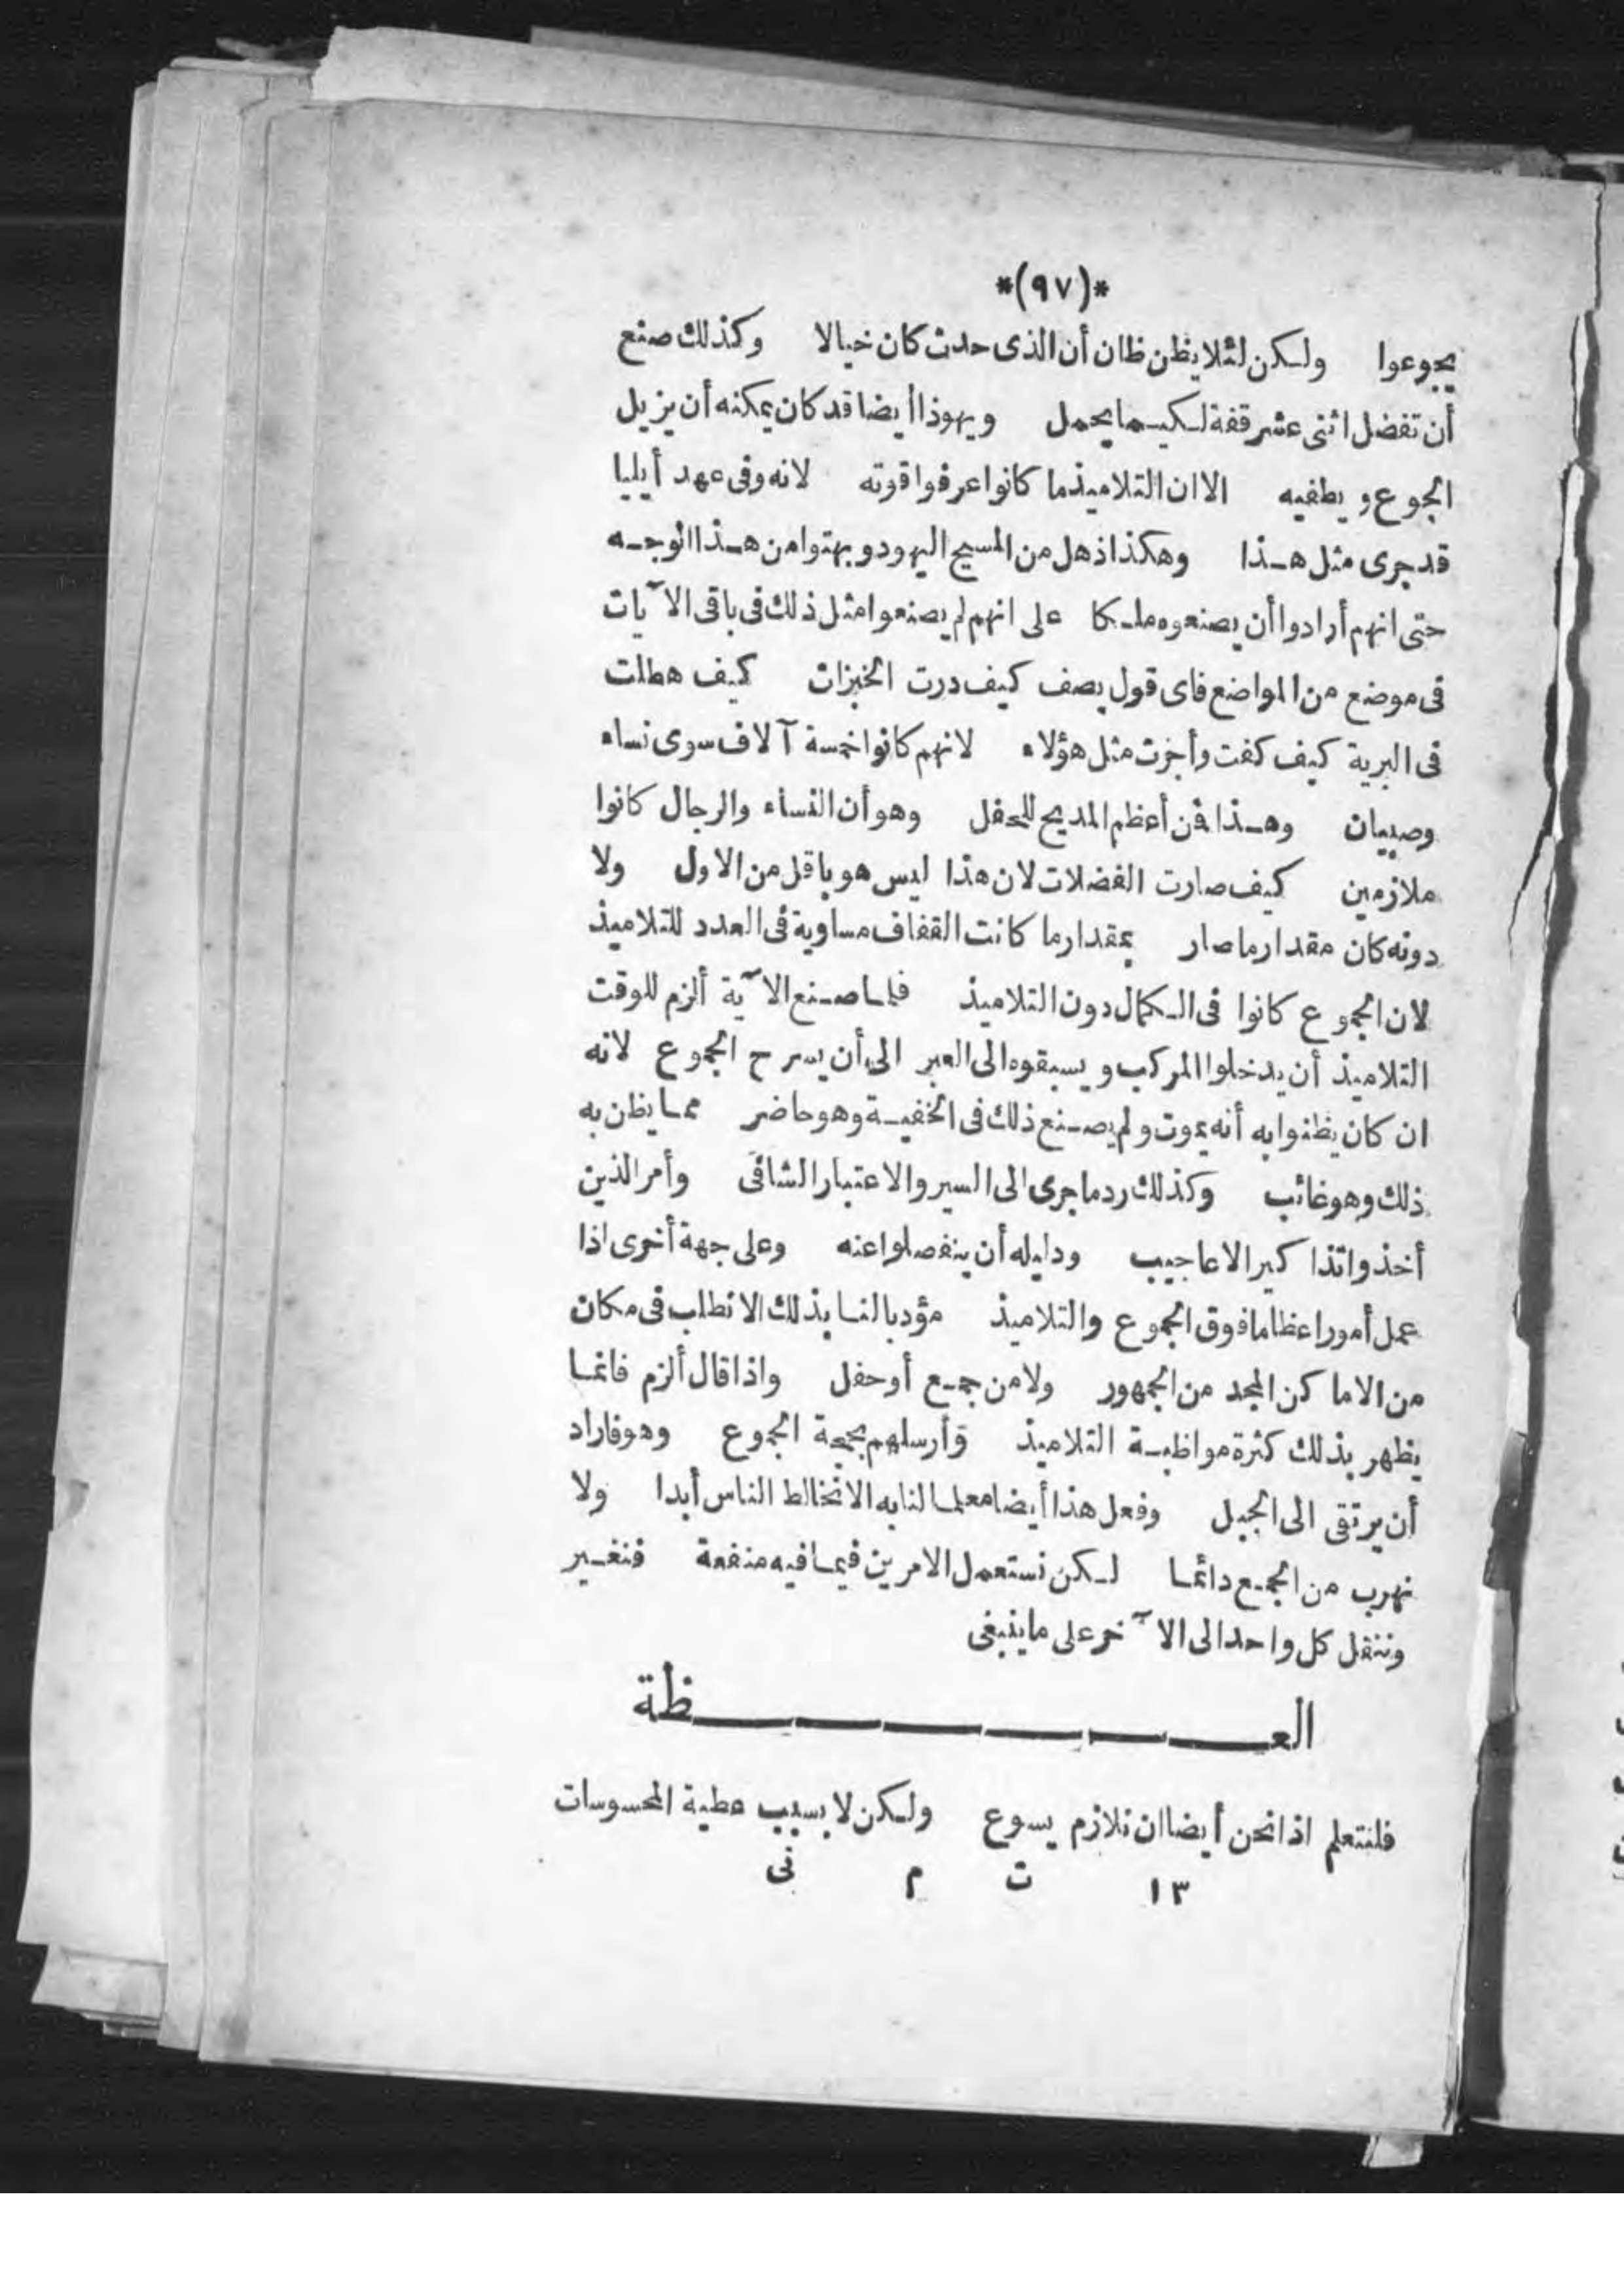 *(٩٧)*
يجوعوا ولكن لئلا يظن ظان أن الذى حدث كان خيالا وكذلك صنع
أن تفضل اثنى عشر قفة لكيما يحمل ويهوذا أيضا قد كان يمكنه أن يزيل
الجوع ويطفيه الا ان التلاميذ ما كانوا عرفوا قوته لانه وفى عهد أيليا
قد جرى مثل هذا وهكذا ذهل من المسيح اليهود وبهتوا من هذا الوجه
حتى انهم أرادوا أن يصنعوه ملكا على انهم لم يصنعوا مثل ذلك فى باقى الآيات
فى موضع من المواضع فاى قول يصف كيف درت الخبزات كيف هطلت
فى البرية كيف كفت وأجزت مثل هؤلاء لانهم كانوا خمسة آلاف سوى نساء
وصبيان وهذا فن أعظم المديح للحفل وهو أن النساء والرجال كانوا
ملازمين كيف صارت الفضلات لان هذا ليس هو باقل من الاول ولا
دونه كان مقدار ما صار بمقدار ما كانت القفاف مساوية فى العدد للتلاميذ
لان الجموع كانوا فى الكمال دون التلاميذ فلما صنع الآية ألزم للوقت
التلاميذ أن يدخلوا المركب ويسبقوه الى العبر الى أن يسرح الجموع لانه
ان كان يظنوا به أنه يموت ولم يصنع ذلك فى الخفية وهو حاضر مما يظن به
ذلك وهو غائب وكذلك رد ما جرى الى السير والاعتبار الشافى وأمر الذين
أخذوا تذاكير الاعاجيب ودليله أن ينفصلوا عنه وعلى جهة أخرى اذا
عمل أمورا عظاما فوق الجموع والتلاميذ مؤدبا لنا بذلك الا نطلب فى مكان
من الاماكن المجد من الجمهور ولا من جمع أو حفل واذا قال ألزم فانما
يظهر بذلك كثرة مواظبة التلاميذ وأرسلهم بحجة الجموع وهو فاراد
أن يرتقى الى الجبل وفعل هذا أيضا معلما لنا به الا نخالط الناس أبدا ولا
نهرب من الجمع دائما لكن نستعمل الامرين فيما فيه منفعة فنغير
وننقل كل واحد الى الآخر على ما ينبغى
العظة
فلنتعلم اذا نحن أيضا ان نلازم يسوع ولكن لا بسبب عطية المحسوسات
١٣ ت م نى